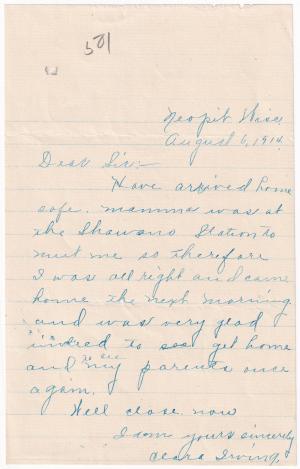 501
Neopit Wisc
August 6, 1914.
Dear Sir:-
Have arrived home
safe. mamma was at
the Shawano Station to
meet me so therefore
I was all right and came
home the next morning
and was very glad
indeed to see get home
to see
and my parents once
again.
Well close now
I am yours sincerely
Clara Irving.